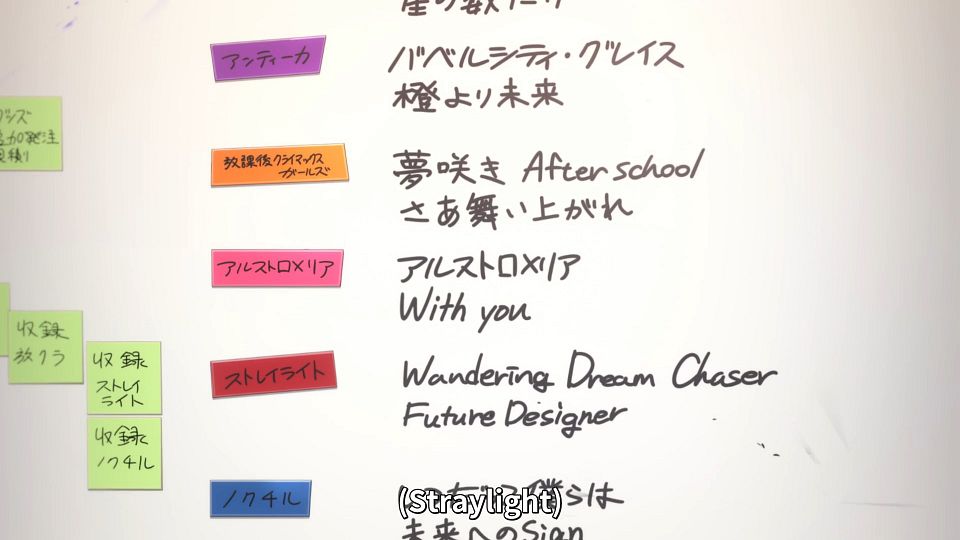 星の数だけ
アンティーカ
バベルシティ・グレイス
橙より未来
追加発注
見積り
放課後クライマックス
ガールズ
夢咲き After school
さあ舞い上がれ
アルストロメリア
アルストロメリア
With you
収録
放クラ
収録
ストレイ
ライト
ストレイライト
Wandering Dream Chaser
Future Designer
収録
ノクチル
ノクチル
いつだって僕らは
未来へのSign
(Straylight)